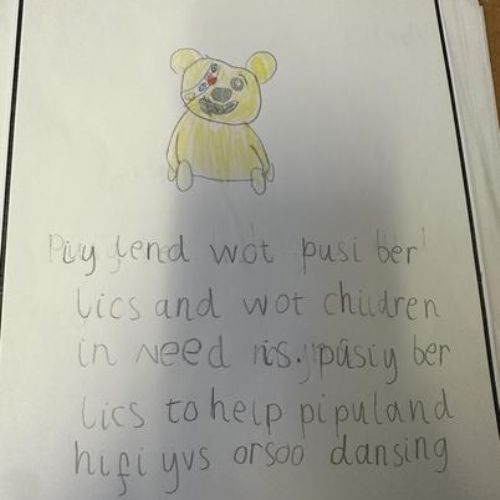 lend wot pusi ber
lics and wot children
in need is. pusiy ber
lics to help pipuland
hifi yvs orsoo dansing